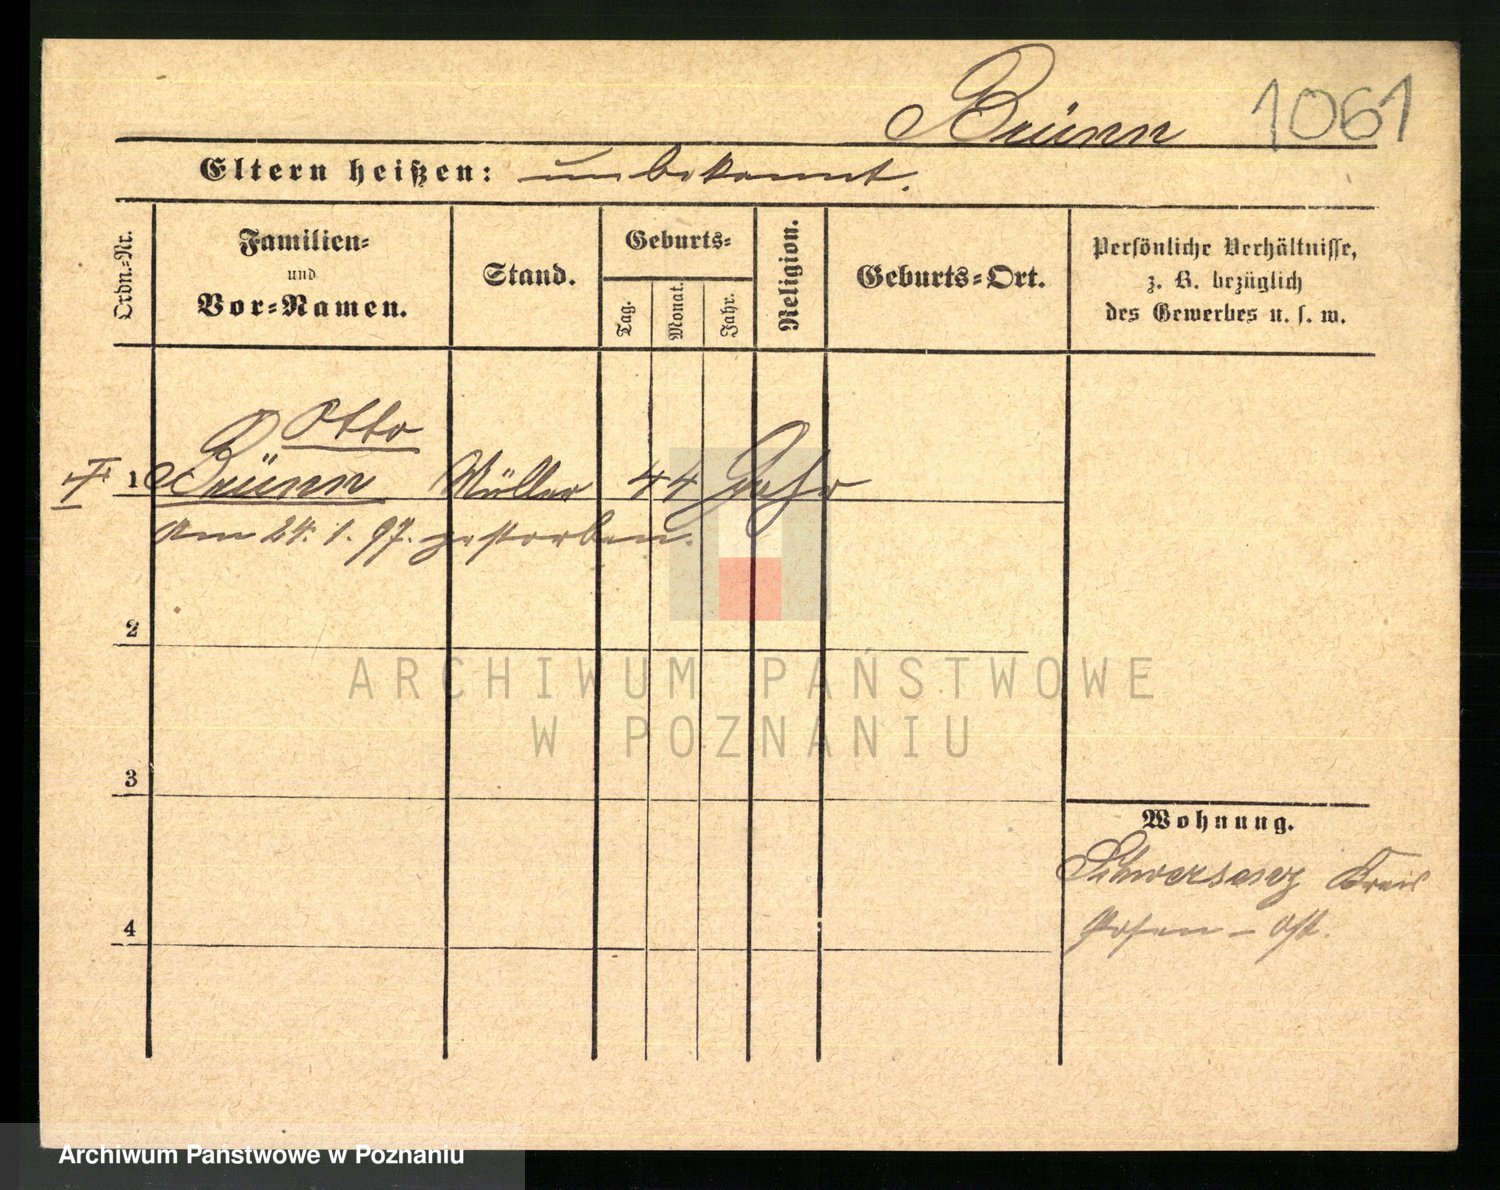 Brünn 1061
Eltern heißen: unbekannt.
Ordn.-Nr.
Familien-
und
Vor-Namen.
Stand.
Geburts-
Tag.
Monat.
Jahr.
Religion.
Geburts-Ort.
Persönliche Verhältnisse,
z. B. bezüglich
des Gewerbes u. s. w.
Otto
1 Brünn Müller 44 Jahr
Am 24. 1. 97. gestorben.
2
3
4
Wohnung.
Schwersenz Kreis
Posen - Ost.
ARCHIWUM PAŃSTWOWE
W POZNANIU
Archiwum Państwowe w Poznaniu